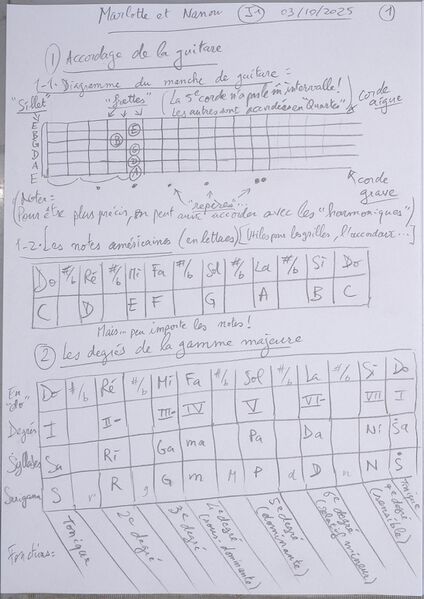 Marlotte et Nanou (J1) 03/10/2025 (1)
① Accordage de la guitare
1-1. Diagramme du manche de guitare =
"Sillet" "frettes" (La 5e corde n'a pas le m. intervalle! corde
Les autres sont accordées en "Quarte") aigue
E
B
G
D
A
E
E
B
G
D
A
"repères"... corde
grave
(Noter:
Pour être plus précis, on peut aussi accorder avec les "harmoniques")
1-2. Les notes américaines (en lettres) [Utiles pour les grilles, l'accordeur...]
Do #/b Ré #/b Mi Fa #/b Sol #/b La #/b Si Do
C D E F G A B C
Mais... peu importe les notes!
② Les degrés de la gamme majeure
En "do" Do #/b Ré #/b Mi Fa #/b Sol #/b La #/b Si Do
Degrés I II- III- IV V VI- VII I
Syllabes Sa Ri Ga ma Pa Da Ni Ṡa
Sargama S r R g G m M P d D n N Ṡ
Fonctions = Tonique
2e degré
3e degré
4e degré (sous-dominante)
5e degré (dominante)
6e degré (relatif mineur)
7e degré (sensible)
Tonique